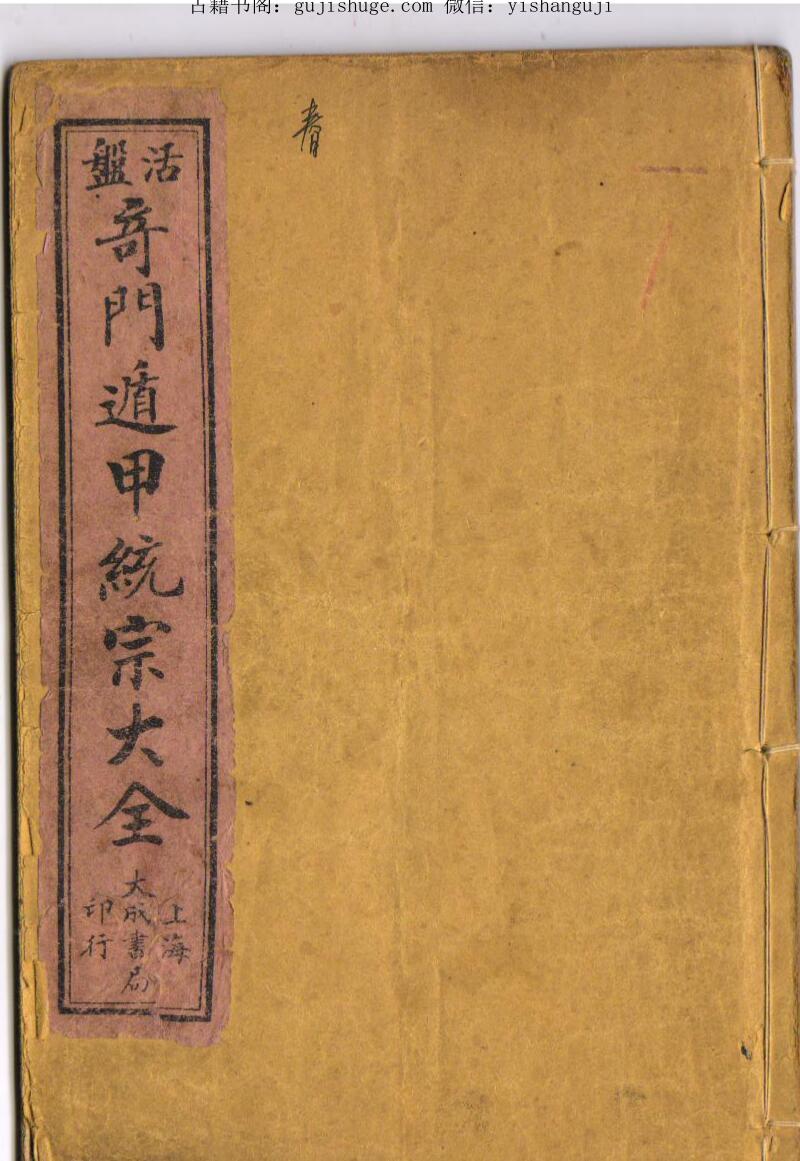 古籍书阁：gujishuge.com 微信：yishanguji
春
活盤
奇門遁甲統宗大全
上海
大成書局
印行